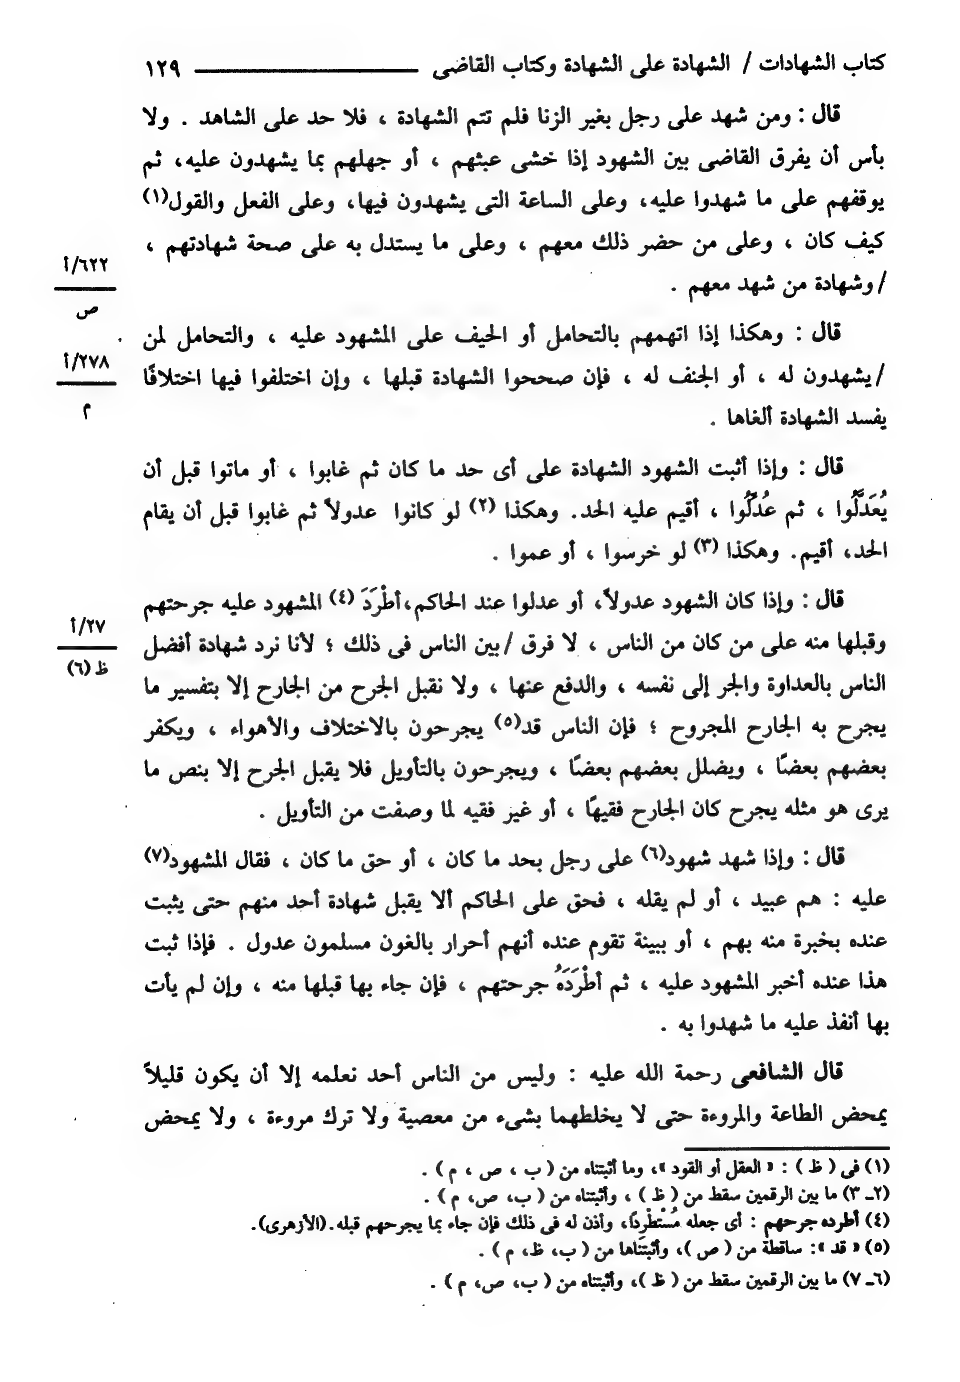 كتاب الشهادات / الشهادة على الشهادة وكتاب القاضى ـــــــــــــ ١٢٩
قال : ومن شهد على رجل بغير الزنا فلم تتم الشهادة ، فلا حد على الشاهد . ولا
بأس أن يفرق القاضى بين الشهود إذا خشى عبثهم ، أو جهلهم بما يشهدون عليه، ثم
يوقفهم على ما شهدوا عليه، وعلى الساعة التى يشهدون فيها، وعلى الفعل والقول(١)
كيف كان ، وعلى من حضر ذلك معهم ، وعلى ما يستدل به على صحة شهادتهم ،
٦٢٢/أ
ص
/وشهادة من شهد معهم .
قال : وهكذا إذا اتهمهم بالتحامل أو الحيف على المشهود عليه ، والتحامل لمن
٢٧٨/أ
م
/يشهدون له ، أو الجنف له ، فإن صححوا الشهادة قبلها ، وإن اختلفوا فيها اختلافًا
يفسد الشهادة ألغاها .
قال : وإذا أثبت الشهود الشهادة على أى حد ما كان ثم غابوا ، أو ماتوا قبل أن
يُعَدَّلُوا ، ثم عُدِّلُوا ، أقيم عليه الحد. وهكذا (٢) لو كانوا عدولاً ثم غابوا قبل أن يقام
الحد، أقيم. وهكذا (٣) لو خرسوا ، أو عموا .
قال : وإذا كان الشهود عدولاً، أو عدلوا عند الحاكم،أطْرَدَ (٤) المشهود عليه جرحتهم
٢٧/أ
ظ (٦)
وقبلها منه على من كان من الناس ، لا فرق /بين الناس فى ذلك ؛ لأنا نرد شهادة أفضل
الناس بالعداوة والجر إلى نفسه ، والدفع عنها ، ولا نقبل الجرح من الجارح إلا بتفسير ما
يجرح به الجارح المجروح ؛ فإن الناس قد(٥) يجرحون بالاختلاف والأهواء ، ويكفر
بعضهم بعضًا ، ويضلل بعضهم بعضًا ، ويجرحون بالتأويل فلا يقبل الجرح إلا بنص ما
يرى هو مثله يجرح كان الجارح فقيهًا ، أو غير فقيه لما وصفت من التأويل .
قال : وإذا شهد شهود(٦) على رجل بحد ما كان ، أو حق ما كان ، فقال المشهود(٧)
عليه : هم عبيد ، أو لم يقله ، فحق على الحاكم ألا يقبل شهادة أحد منهم حتى يثبت
عنده بخبرة منه بهم ، أو ببينة تقوم عنده أنهم أحرار بالغون مسلمون عدول . فإذا ثبت
هذا عنده أخبر المشهود عليه ، ثم أطْرَدَهُ جرحتهم ، فإن جاء بها قبلها منه ، وإن لم يأت
بها أنفذ عليه ما شهدوا به .
قال الشافعى رحمة الله عليه : وليس من الناس أحد نعلمه إلا أن يكون قليلاً
يمحض الطاعة والمروءة حتى لا يخلطهما بشىء من معصية ولا ترك مروءة ، ولا يمحض
(١) فى ( ظ ) : « العقل أو القود »، وما أثبتناه من ( ب ، ص ، م ) .
(٢ـ ٣) ما بين الرقمين سقط من ( ظ ) ، وأثبتناه من ( ب، ص، م ) .
(٤) أطرده جرحهم : أى جعله مُسْتَطْرِدًا، وأذن له فى ذلك فإن جاء بما يجرحهم قبله.(الأزهرى).
(٥) « قد »: ساقطة من ( ص )، وأثبتناها من ( ب، ظ، م ) .
(٦ـ ٧) ما بين الرقمين سقط من ( ظ )، وأثبتناه من ( ب، ص، م ) .